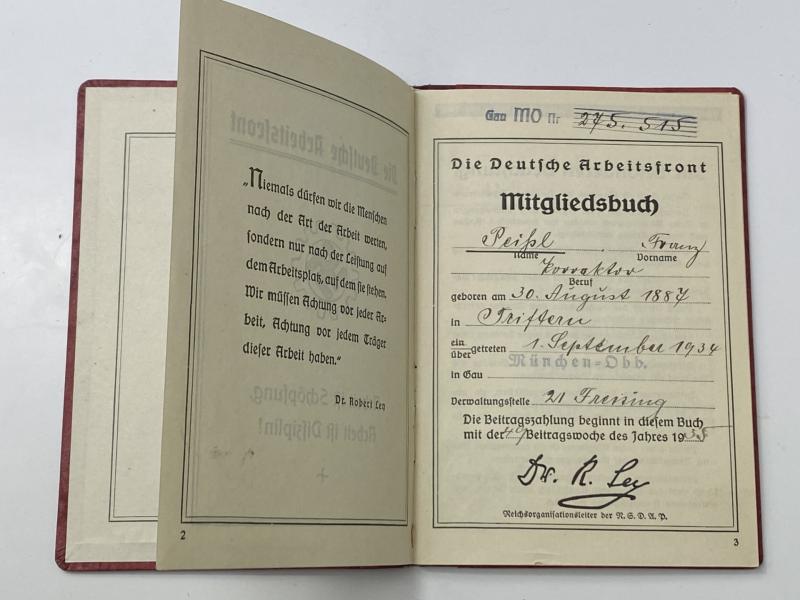 „Niemals dürfen wir die Menschen
nach der Art der Arbeit werten,
sondern nur nach der Leistung auf
dem Arbeitsplatz, auf dem sie stehen.
Wir müssen Achtung vor jeder Ar-
beit, Achtung vor jedem Träger
dieser Arbeit haben."
Dr. Robert Ley
2
Gau MO Nr 275.515
Die Deutsche Arbeitsfront
Mitgliedsbuch
Peißl Franz
Name Vorname
Korrektor
Beruf
geboren am 30. August 1887
in Triftern
ein
über getreten 1. September 1934
München-Obb.
in Gau
Verwaltungsstelle 21 Freising
Die Beitragszahlung beginnt in diesem Buch
mit der Beitragswoche des Jahres 19
Dr. R. Ley
Reichsorganisationsleiter der N.S.D.A.P.
3